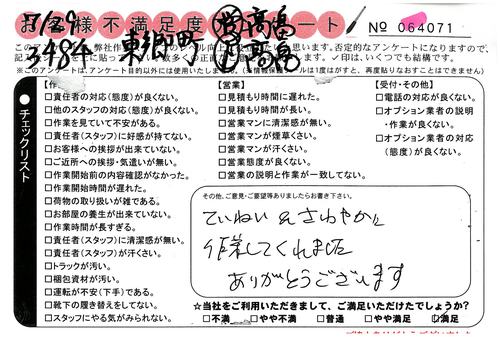 お客様不満足度アンケート
No 064071
7/29
3484 東郷町
※このアンケートは、アンケート目的以外には使用いたしません。
チェックリスト
【作業】
□責任者の対応(態度)が良くない。
□他のスタッフの対応(態度)が良くない。
□作業を見ていて不安がある。
□責任者(スタッフ)に好感が持てない。
□お客様への挨拶が出来ていない。
□ご近所への挨拶・気遣いが無い。
□作業開始前の内容確認がなかった。
□作業開始時間が遅れた。
□荷物の取り扱いが雑である。
□お部屋の養生が出来ていない。
□作業時間が長すぎる。
□責任者(スタッフ)に清潔感が無い。
□責任者(スタッフ)が汗くさい。
□トラックが汚い。
□梱包資材が汚い。
□運転が不安(下手)である。
□靴下の履き替えをしてない。
□スタッフにやる気がみられない。
【営業】
□見積もり時間に遅れた。
□見積もり時間が長い。
□営業マンに清潔感が無い。
□営業マンが煙草くさい。
□営業マンが汗くさい。
□営業態度が良くない。
□営業の説明と作業が一致してない。
【受付・その他】
□電話の対応が良くない。
□オプション業者の説明
・作業が良くない。
□オプション業者の対応
(態度)が良くない。
その他、ご意見・ご要望等ありましたらお書き下さい。
ていねい&さわやかに
作業してくれました
ありがとうございます
☆当社をご利用いただきまして、ご満足いただけたでしょうか?
□不満 □やや不満 □普通 □やや満足 ☑満足